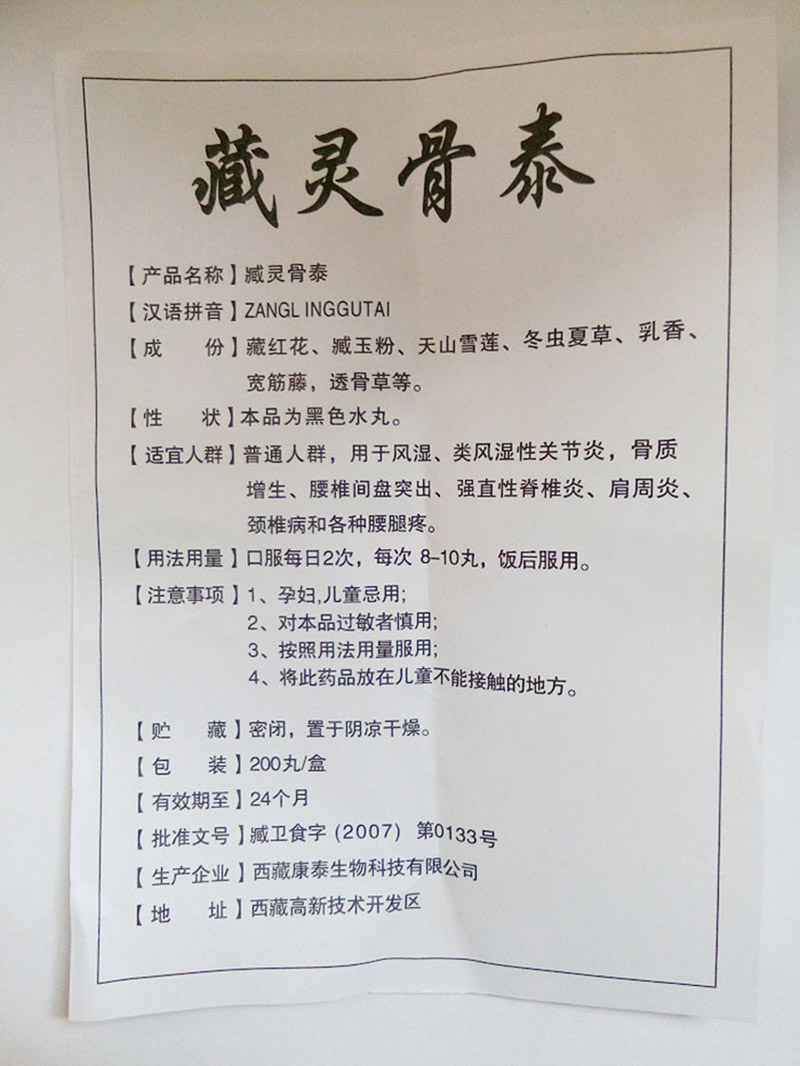 藏灵骨泰
【产品名称】臧灵骨泰
【汉语拼音】ZANGL INGGUTAI
【成 份】藏红花、臧玉粉、天山雪莲、冬虫夏草、乳香、
宽筋藤，透骨草等。
【性 状】本品为黑色水丸。
【适宜人群】普通人群，用于风湿、类风湿性关节炎，骨质
增生、腰椎间盘突出、强直性脊椎炎、肩周炎、
颈椎病和各种腰腿疼。
【用法用量】口服每日2次，每次 8-10丸，饭后服用。
【注意事项】1、孕妇,儿童忌用;
2、对本品过敏者慎用;
3、按照用法用量服用;
4、将此药品放在儿童不能接触的地方。
【贮 藏】密闭，置于阴凉干燥。
【包 装】200丸/盒
【有效期至】24个月
【批准文号】臧卫食字（2007）第0133号
【生产企业】西藏康泰生物科技有限公司
【地 址】西藏高新技术开发区